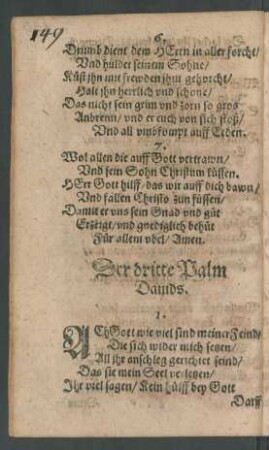 149
6.
Drumb dient dem HErrn in aller forcht/
Vnd huldet seinem Sohne/
Küßt jhn mit frewden jhm gehorcht/
Halt jhn herrlich vnd schone/
Das nicht sein grim vnd zorn so gros
Anbrenn/ vnd er euch von sich stoß/
Vnd all vmbkompt auff Erden.
7.
Wol allen die auff Gott vertrawn/
Vnd sein Sohn Christum füssen.
HErr Gott hilff/ das wir auff dich bawn/
Vnd fallen Christo zun füssen/
Damit er vns sein Gnad vnd güt
Erzeigt/ vnd gnediglich behüt
Für allem vbel/ Amen.
Der dritte Psalm
Dauids.
1.
ACh Gott wie viel sind meiner Feind/
Die sich wider mich setzen/
All jhr anschleg gerichtet seind/
Das sie mein Seel verletzen/
Jhr viel sagen/ Kein hülff bey Gott
Darff